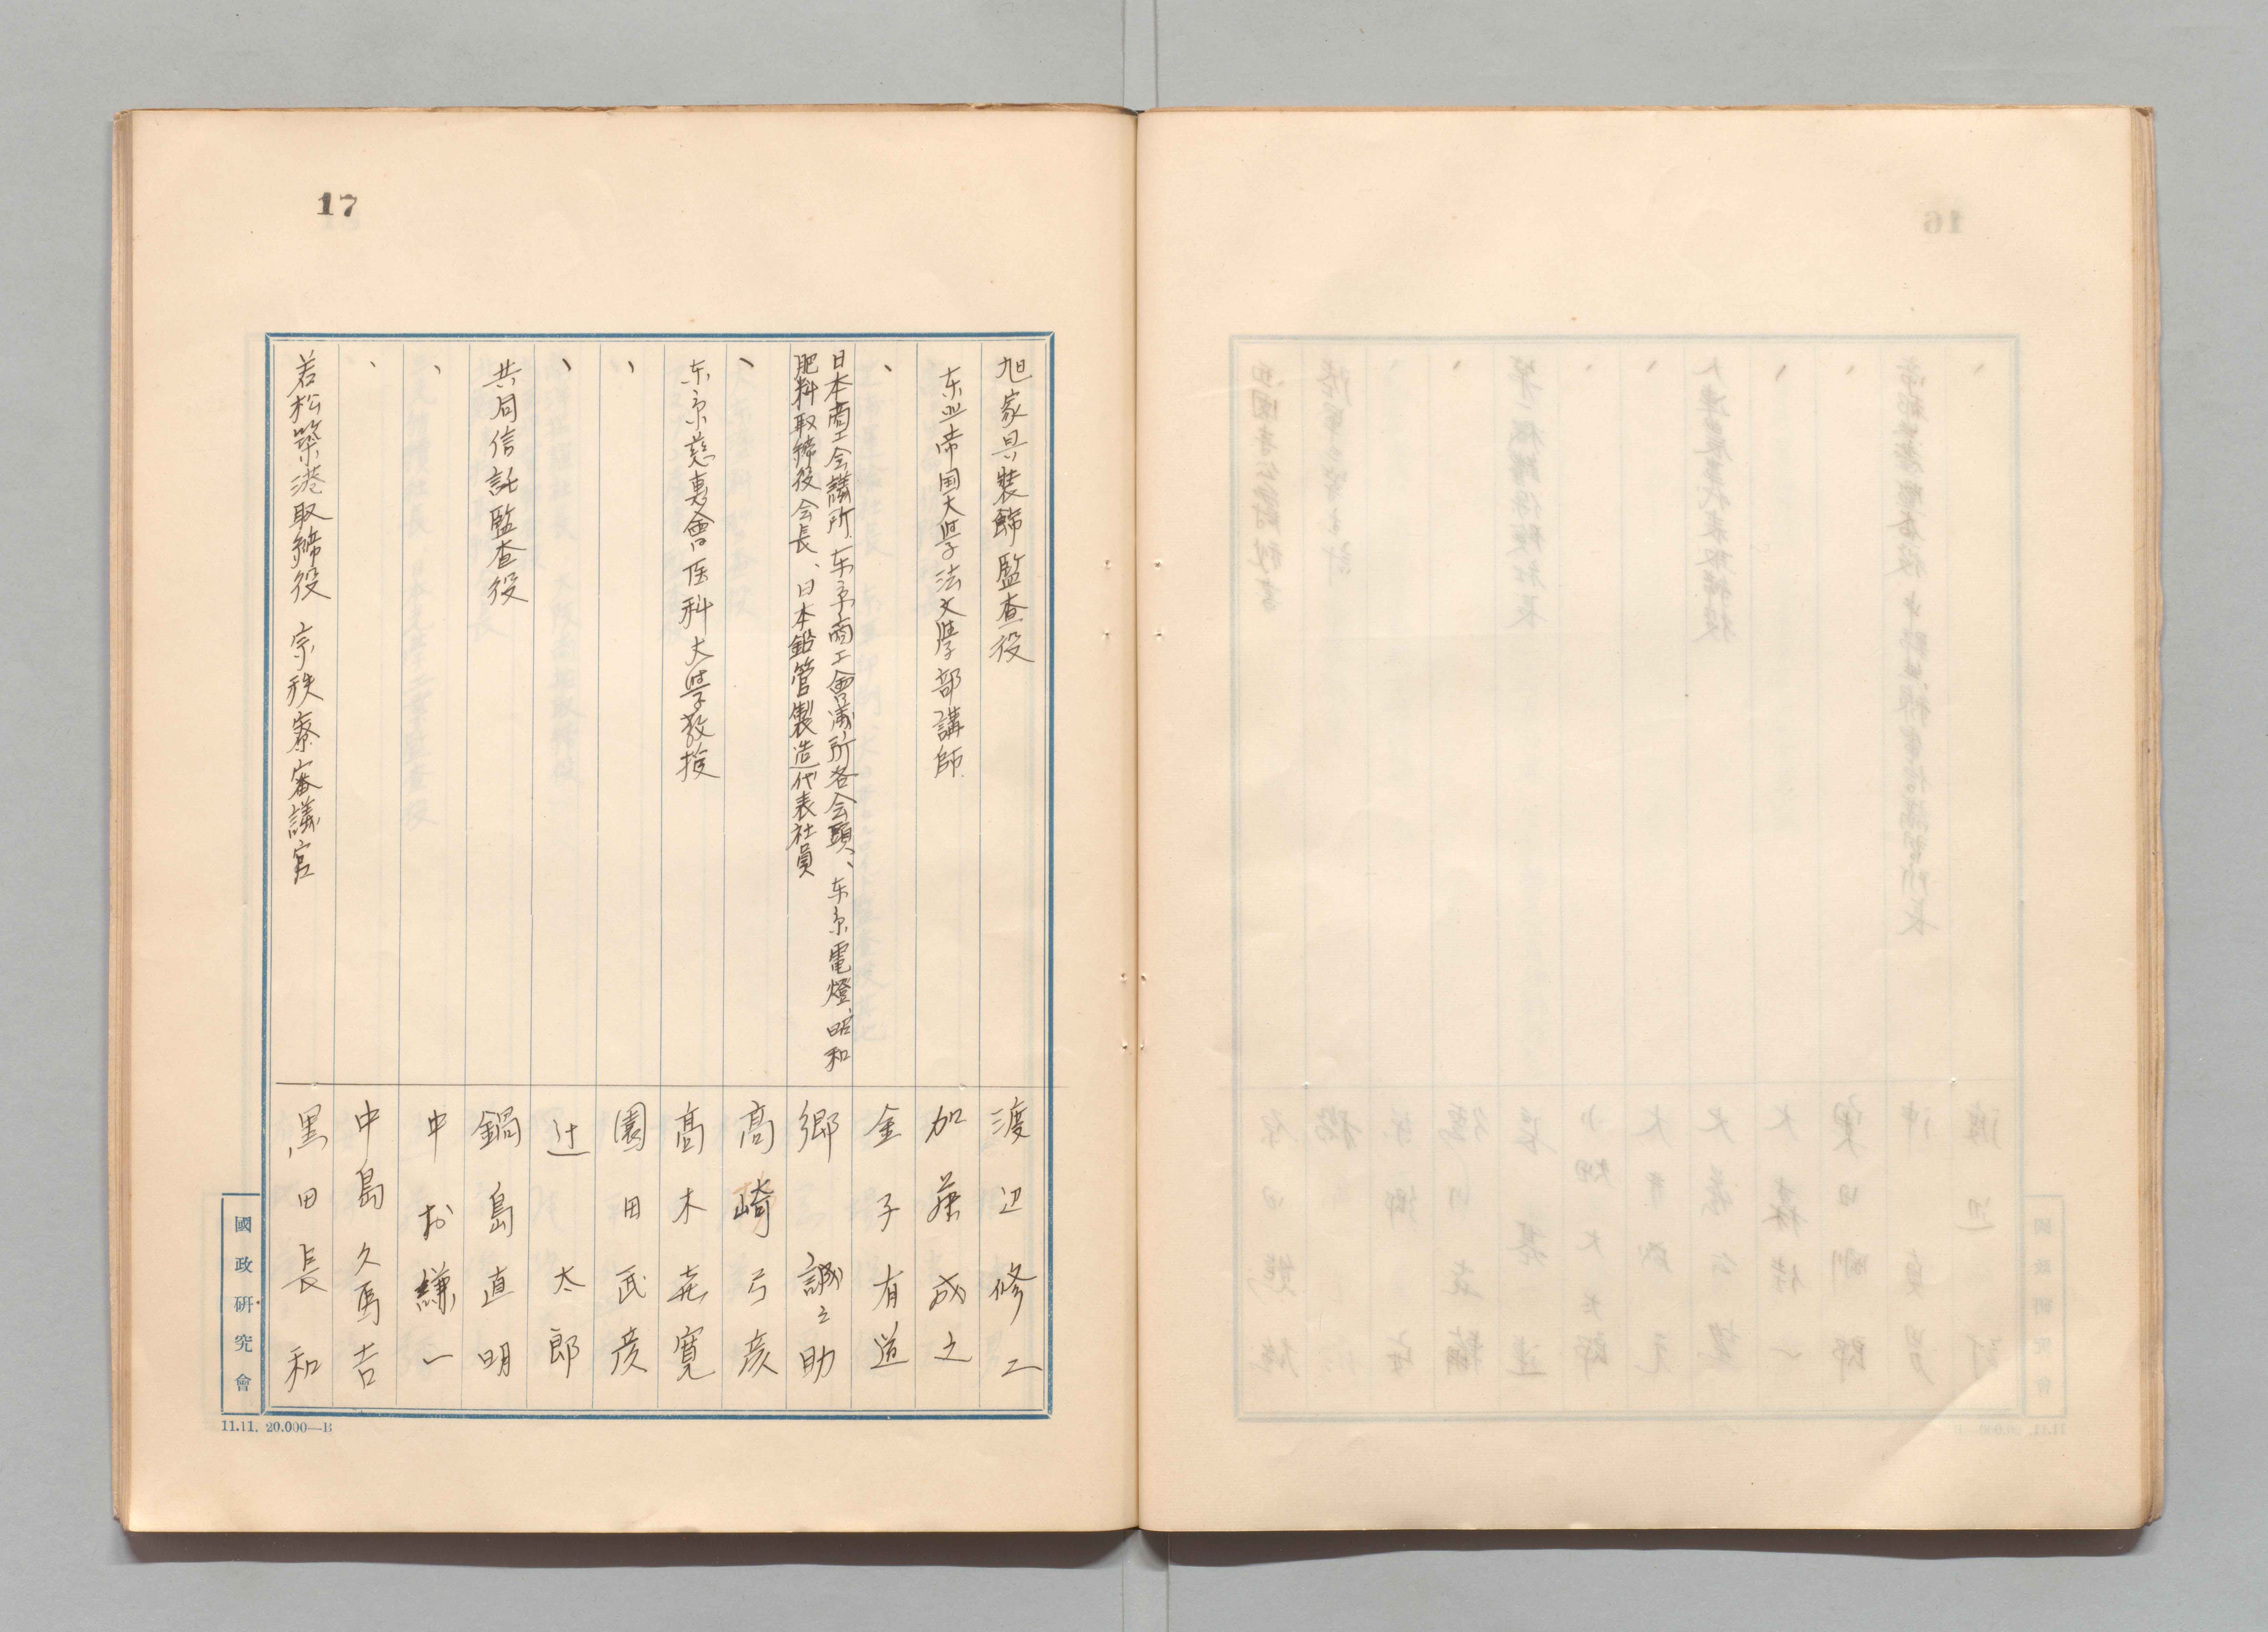 17
旭家具裝飾監査役
渡辺修二
东北帝国大學法文學部講師
加藤成之
、
金子有道
日本商工会議所、东京商工會議所各会頭、东京電燈、昭和
肥料取締役会長、日本鉛管製造代表社員
郷誠之助
、
高崎弓彦
东京慈惠會医科大學教授
髙木喜寛
、
園田武彦
、
辻太郎
共同信託監査役
鍋島直明
、
中村謙一
、
中島久萬吉
若松築港取締役 宗秩寮審議官
黒田長和
國政研究會
11.11. 20.000—B